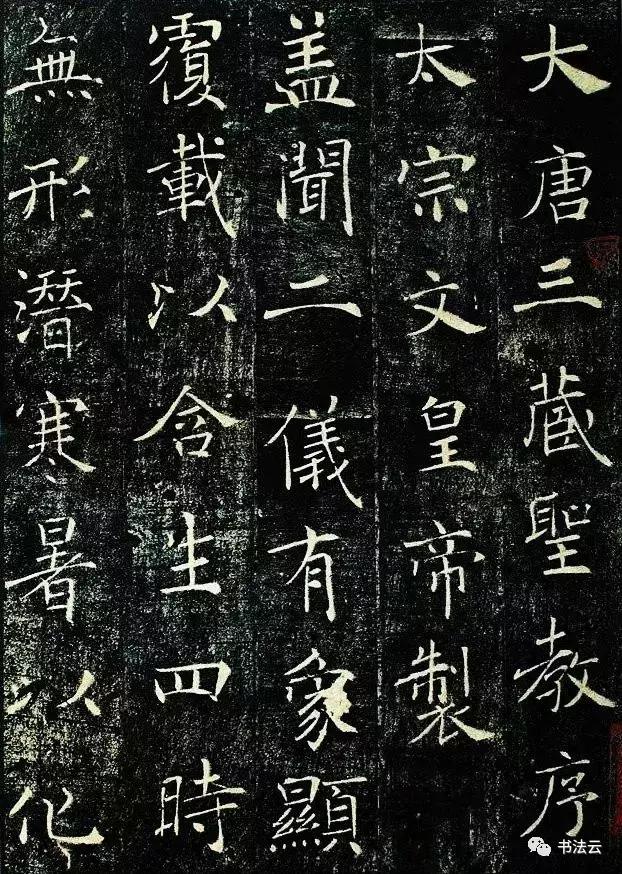 大唐三藏聖教序
太宗文皇帝製
盖聞二儀有象顯
覆載以含生四時
無形潛寒暑以化
书法云